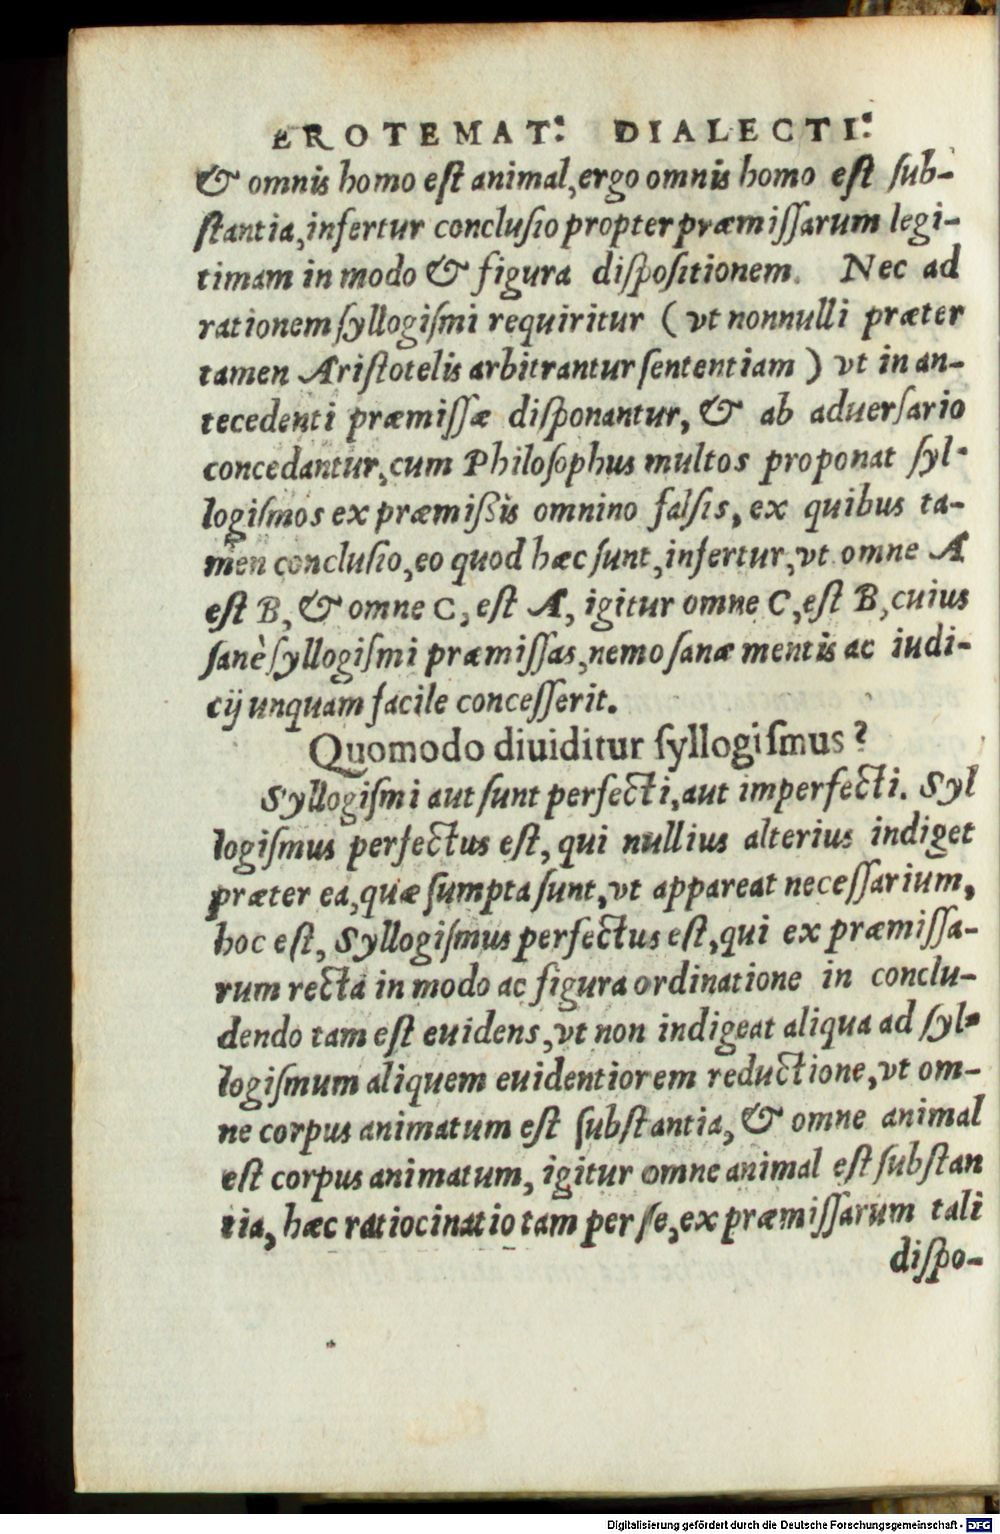 EROTEMAT: DIALECTI:
& omnis homo est animal, ergo omnis homo est sub-
stantia, infertur conclusio propter præmissarum legi-
timam in modo & figura dispositionem. Nec ad
rationem syllogismi requiritur (vt nonnulli præter
tamen Aristotelis arbitrantur sententiam) vt in an-
tecedenti præmissæ disponantur, & ab aduersario
concedantur, cum Philosophus multos proponat syl-
logismos ex præmissis omnino falsis, ex quibus ta-
men conclusio, eo quod hæc sunt, infertur, vt omne A
est B, & omne C, est A, igitur omne C, est B, cuius
sanè syllogismi præmissas, nemo sanæ mentis ac iudi-
cij unquam facile concesserit.
Quomodo diuiditur syllogismus?
Syllogismi aut sunt perfecti, aut imperfecti. Syl
logismus perfectus est, qui nullius alterius indiget
præter ea, quæ sumpta sunt, vt appareat necessarium,
hoc est, Syllogismus perfectus est, qui ex præmissa-
rum recta in modo ac figura ordinatione in conclu-
dendo tam est euidens, vt non indigeat aliqua ad syl-
logismum aliquem euidentiorem reductione, vt om-
ne corpus animatum est substantia, & omne animal
est corpus animatum, igitur omne animal est substan
tia, hæc ratiocinatio tam per se, ex præmissarum tali
dispo-
Digitalisierung gefördert durch die Deutsche Forschungsgemeinschaft - DFG